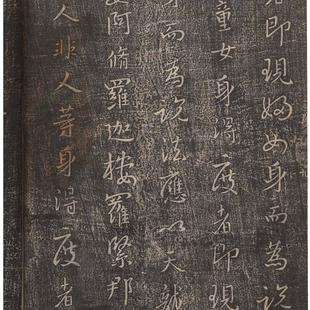 者即現婦女身而為說
童女身得度者即現
身而為說法應以天龍
婆阿脩羅迦樓羅緊那
人非人等身得度者